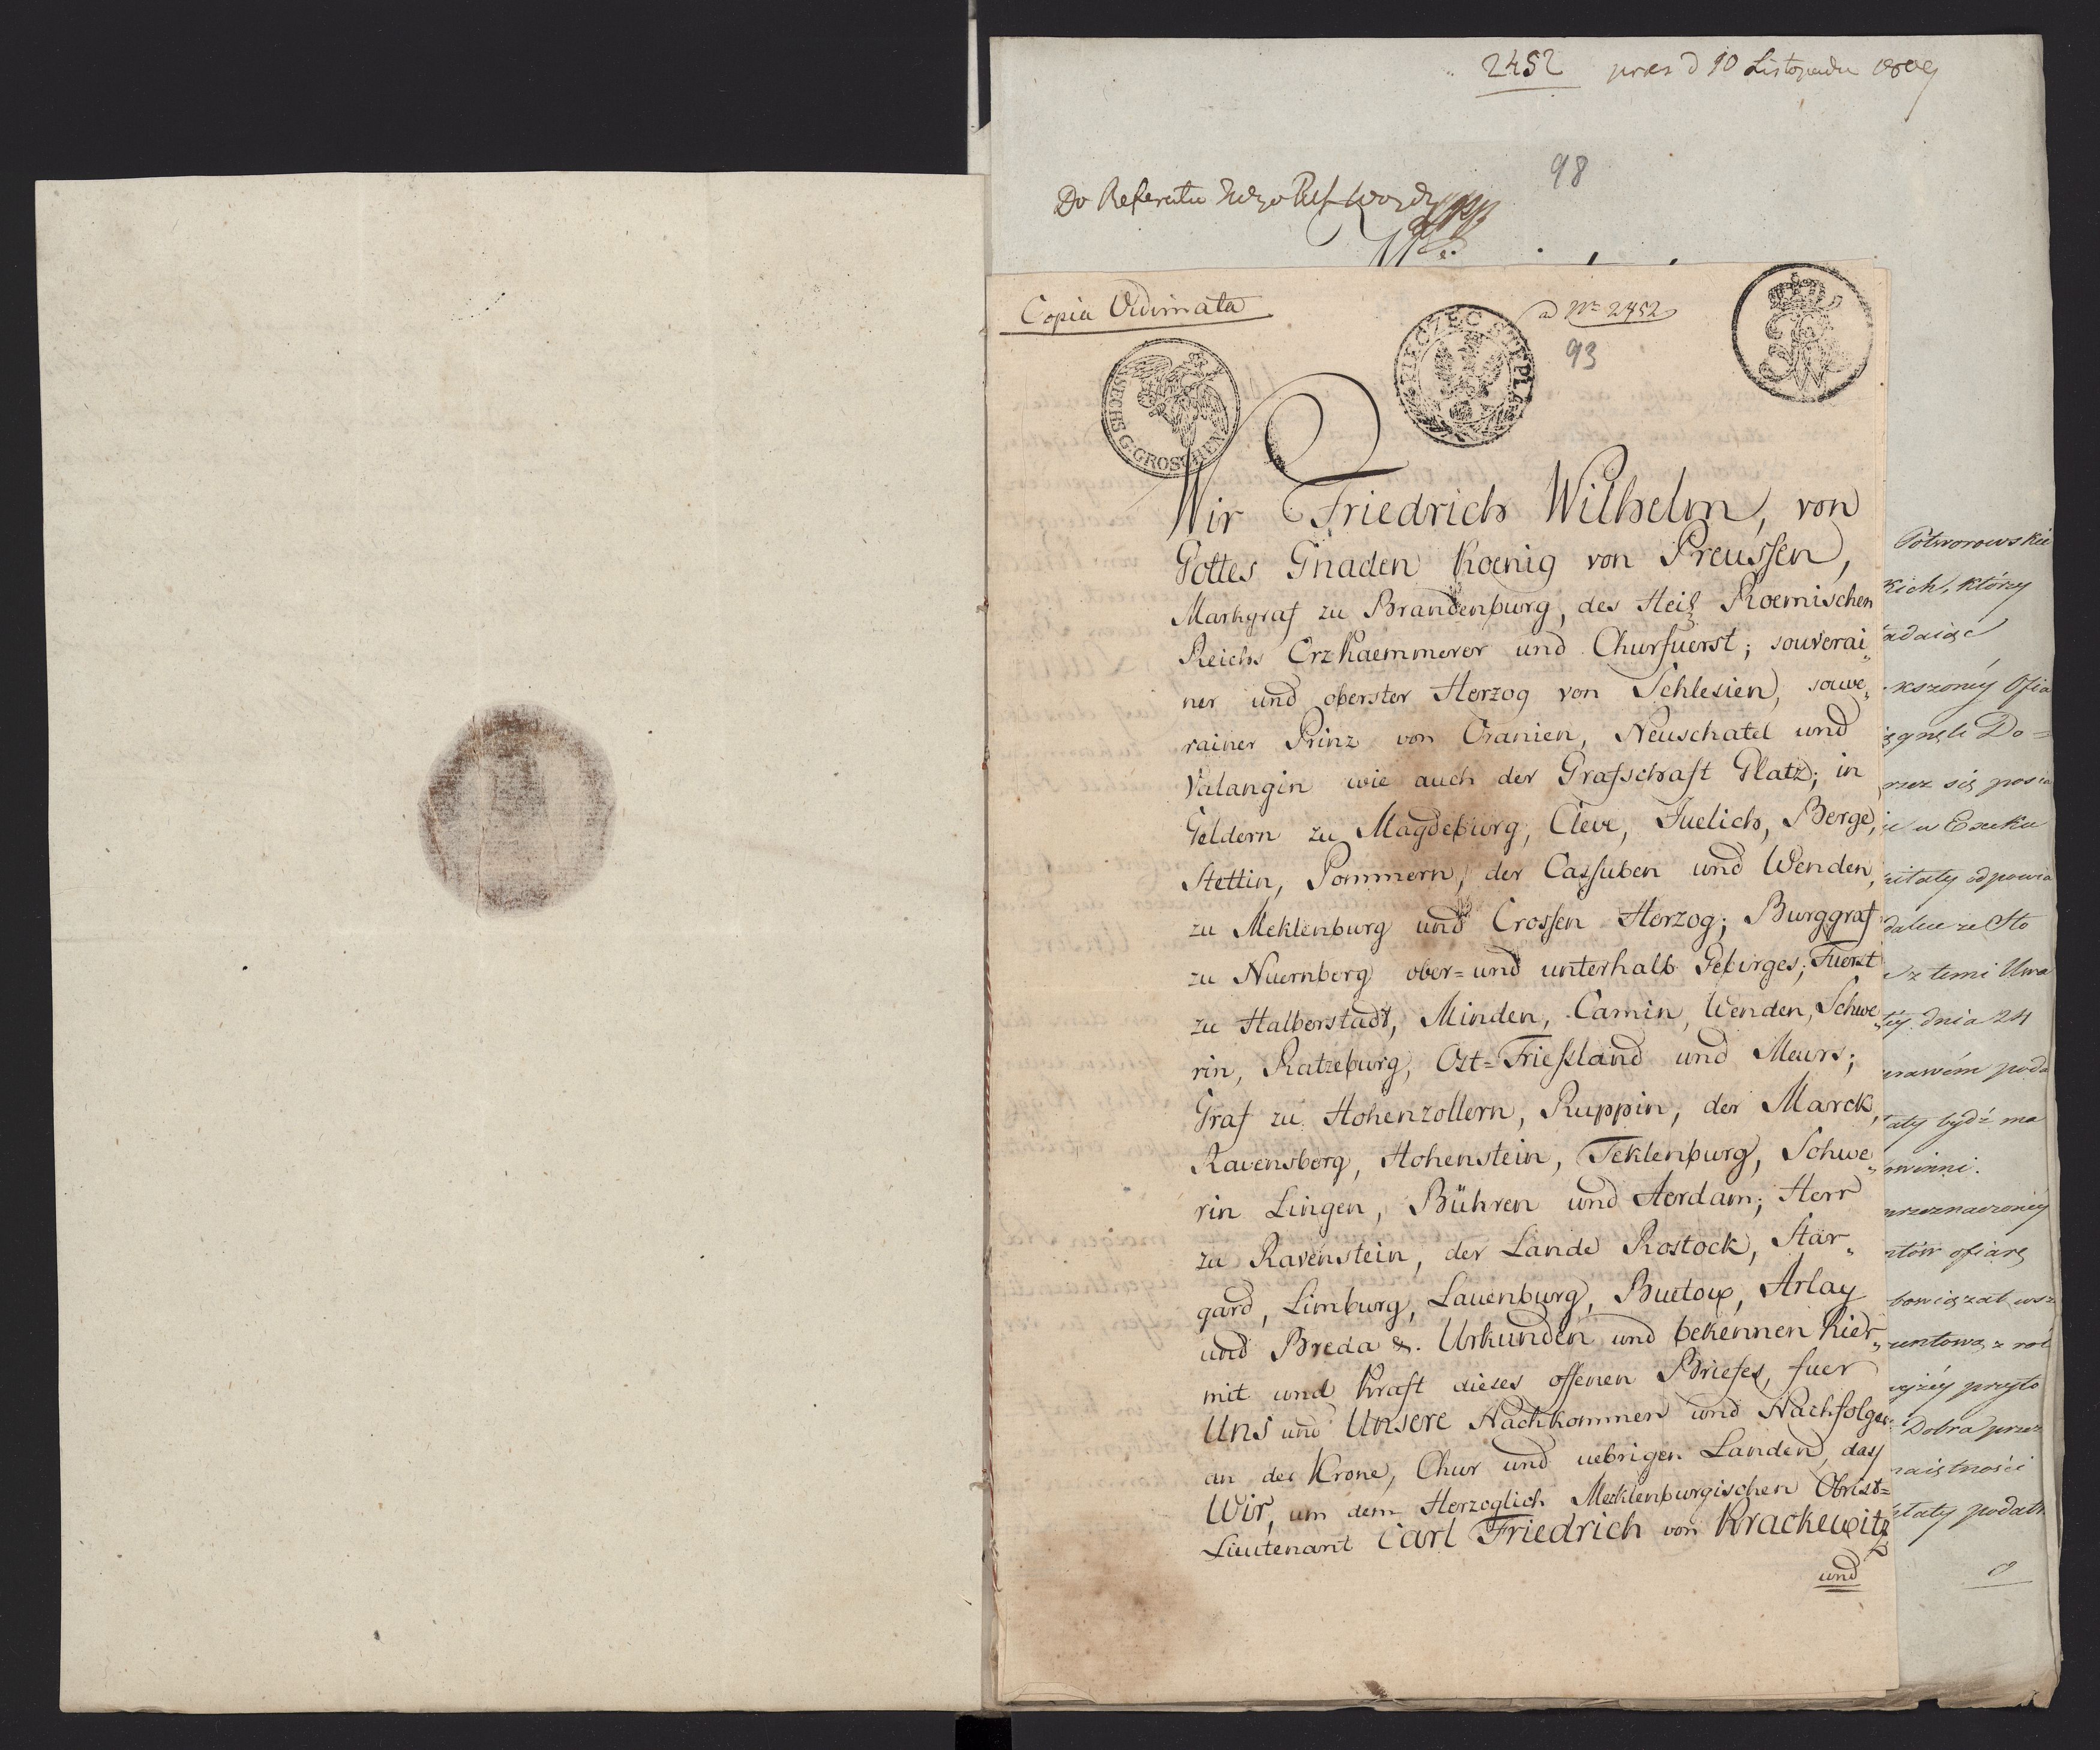 2452 præs d 10 Listopada 1809
98
Do Referatu
Copia Vidimata
ad Nro 2452
93
SECHS G. GROSCHEN
Wir Friedrich Wilhelm, von
Gottes Gnaden Koenig von Preussen,
Markgraf zu Brandenburg, des Heil Roemischen
Reichs ErzKaemmerer und Churfuerst; souverai„
ner und oberster Herzog von Schlesien, souve„
rainer Prinz von Oranien, Neuschatel und
Valangin wie auch der Grafschaft Glatz; in
Geldern zu Magdeburg, Cleve, Juelich, Berge,
Stettin, Pommern, der Cassuben und Wenden,
zu Meklenburg und Crossen Herzog; Burggraf
zu Nuernberg ober= und unterhalb Gebirges; Fuerst
zu Halberstadt, Minden, Camin, Wenden, Schwe„
rin, Ratzeburg, Ost=Friesland und Meurs;
Graf zu Hohenzollern, Ruppin, der Marck,
Ravensberg, Hohenstein, Teklenburg, Schwe„
rin Lingen, Bühren und Aerdam; Herr
zu Ravenstein, der Lande Rostock, Star„
gard, Limburg, Lauenburg, Buetow, Arlay
und Breda &. Urkunden und bekennen hier„
mit und Kraft dieses offenen Briefes, fuer
Uns und Unsere Nachkommen und Nachfolger
an der Krone, Chur und uebrigen Landen, dass
Wir, um dem Herzoglich Mecklenburgischen Obrist=
Lieutenant Carl Friedrich von Krackewitz
und
Potworowskie
kich, którzy
adaiąc
kszoney Ofia
ągnęli Do=
rzez się posia
w Exeku
itaty odpowia
dalece ze Sto
z temi Uwa
tey dnia 24
prawém poda
taty bydź ma
winni.
przeznaczoney
ntów ofiarę
bowiązał wsz
runtową z roi
Dobra przez
maiętności
ztaty podatk